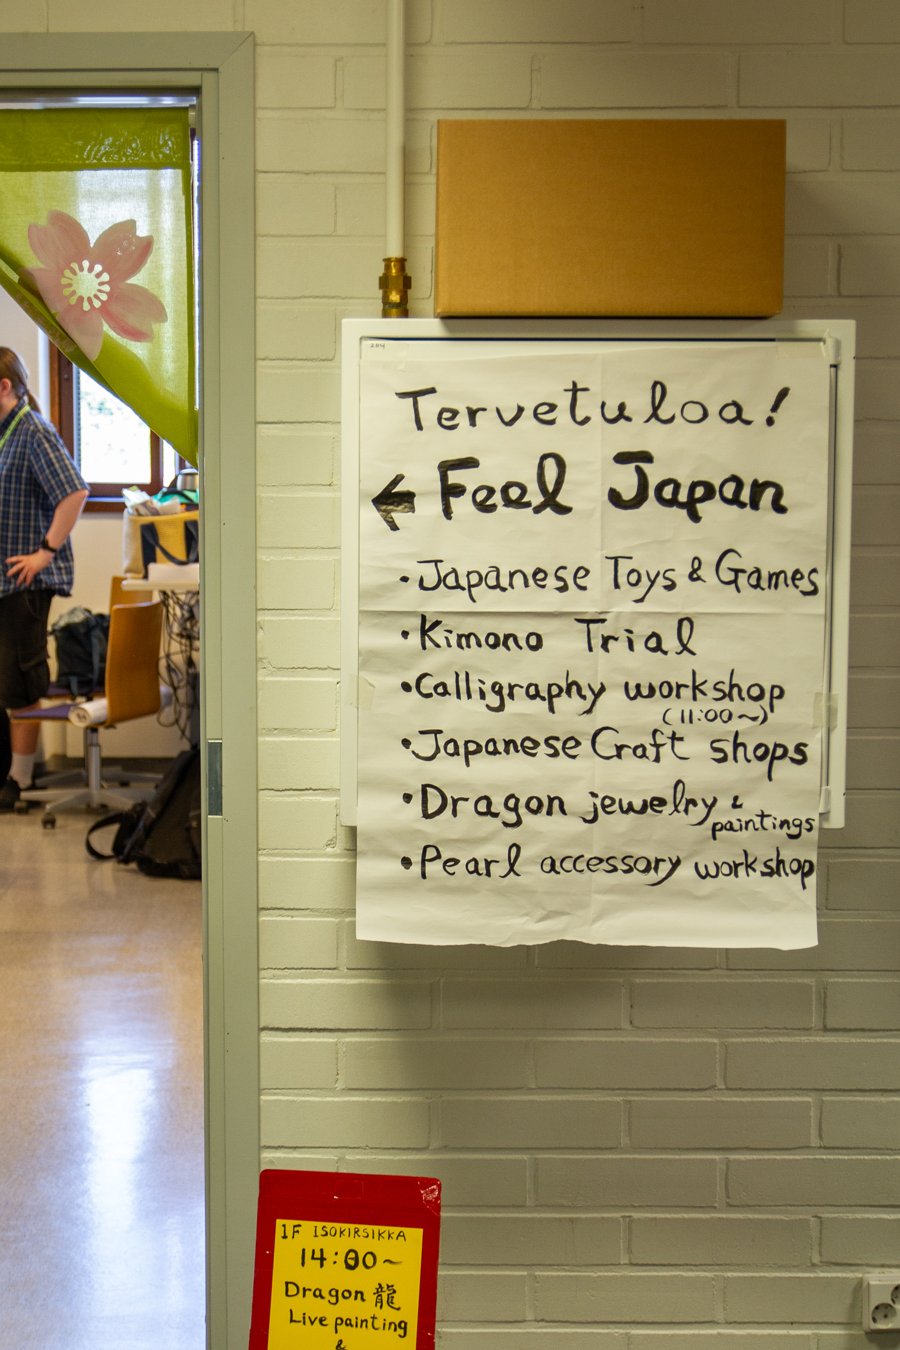 204
Tervetuloa!
← Feel Japan
• Japanese Toys & Games
• Kimono Trial
• Calligraphy workshop
(11:00~)
• Japanese Craft shops
• Dragon jewelry &
paintings
• Pearl accessory workshop
1F ISOKIRSIKKA
14:00~
Dragon 龍
Live painting
&